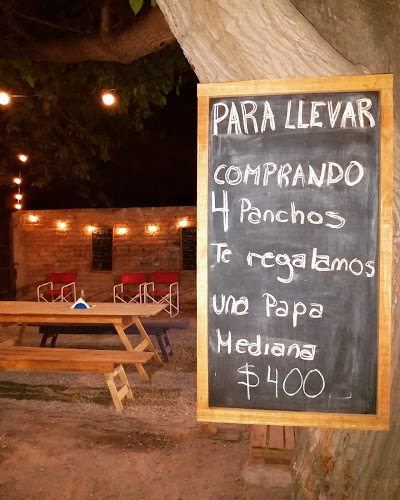 PARA LLEVAR
COMPRANDO
4 Panchos
Te regalamos
una Papa
Mediana
$400